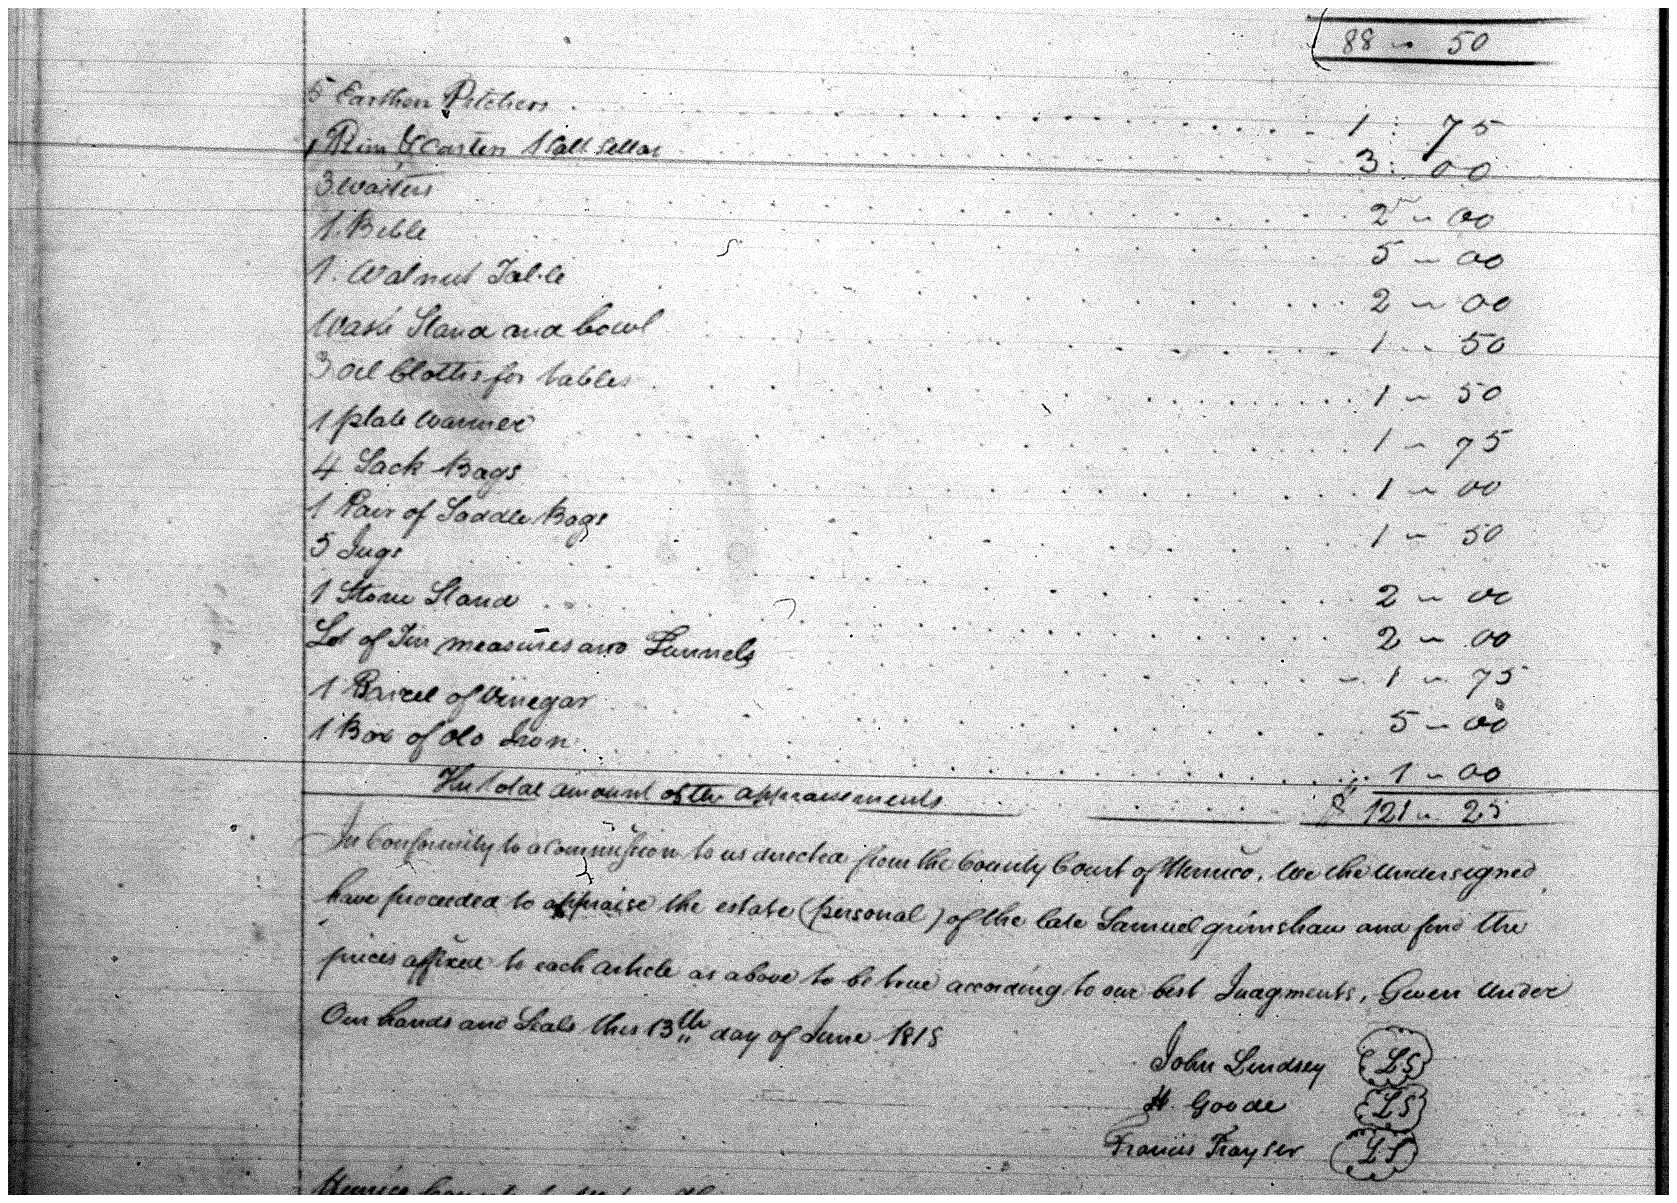 88 ~ 50
5 Earthen Pitchers . . . 1 : 75
Rim & Casters 1 Salt Sellar . . . 3 : 00
3 Waiters . . . 2 ~ 00
1 Bible . . . 5 ~ 00
1 Walnut Table . . . 2 ~ 00
Wash Stand and bowl . . . 1 ~ 50
3 oil Cloths for tables . . . 1 ~ 50
1 plate Warmer . . . 1 ~ 75
4 Sack Bags . . . 1 ~ 00
1 Pair of Saddle Bags . . . 1 ~ 50
5 Jugs . . . 2 ~ 00
1 Stone Stand . . . 2 ~ 00
Lot of Tin measures and Funnels . . . 1 ~ 75
1 Barrel of Vinegar . . . 5 ~ 00
1 Box of old Iron . . . 1 ~ 00
The total amount of the appraisements . . . $ 121 ~ 25
In Conformity to a Commission to us directed from the County Court of Henrico, We the Undersigned
have proceeded to appraise the estate (personal) of the late Samuel grimshaw and find the
prices affixed to each article as above to be true according to our best Judgments, Given Under
Our hands and Seals this 13th day of June 1818
John Lindsey LS
H. Goode LS
Francis Frayser LS